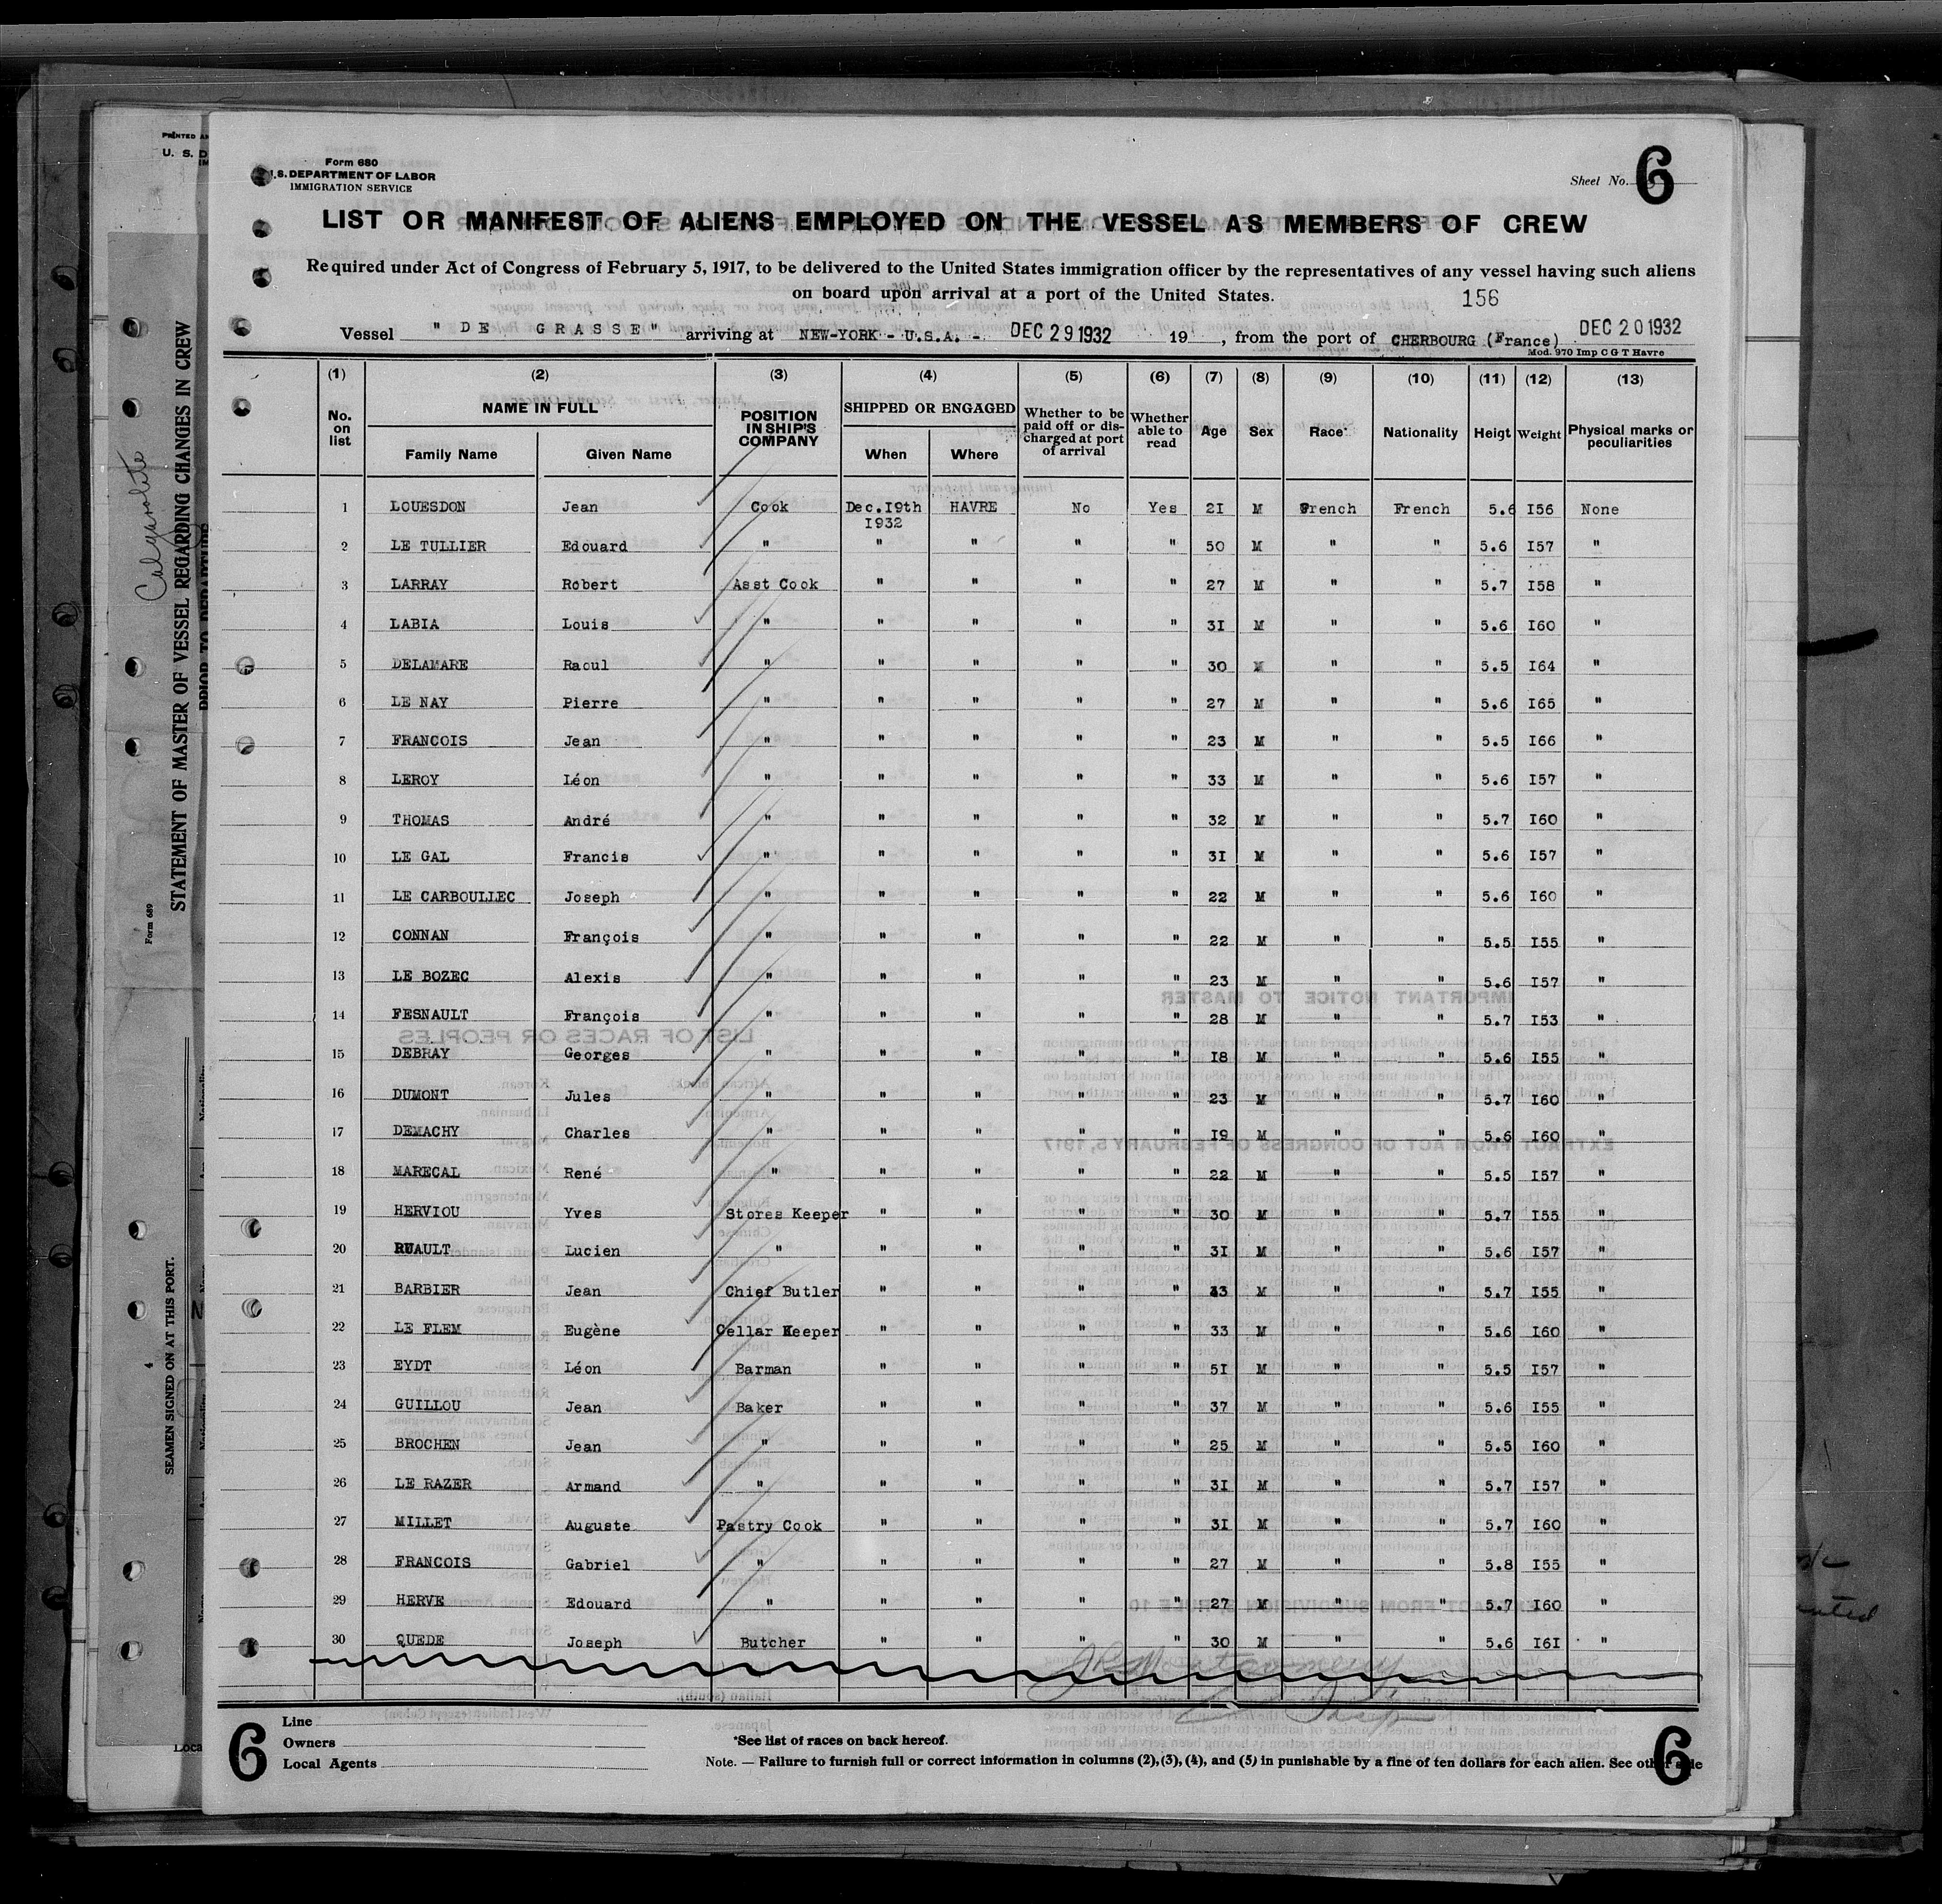 Form 680
U.S. DEPARTMENT OF LABOR
IMMIGRATION SERVICE
Sheet No. 6
LIST OR MANIFEST OF ALIENS EMPLOYED ON THE VESSEL AS MEMBERS OF CREW
Required under Act of Congress of February 5, 1917, to be delivered to the United States immigration officer by the representatives of any vessel having such aliens
on board upon arrival at a port of the United States.
156
Vessel " DE GRASSE" arriving at NEW-YORK - U.S.A. - DEC 29 1932 19 , from the port of CHERBOURG (France) DEC 20 1932
Mod. 970 Imp C G T Havre
(1) (2) (3) (4) (5) (6) (7) (8) (9) (10) (11) (12) (13)
No. on list NAME IN FULL Family Name Given Name POSITION IN SHIP'S COMPANY SHIPPED OR ENGAGED When Where Whether to be paid off or discharged at port of arrival Whether able to read Age Sex Race* Nationality Heigt Weight Physical marks or peculiarities
1 LOUESDON Jean Cook Dec.I9th I932 HAVRE No Yes 2I M French French 5.6 I56 None
2 LE TULLIER Edouard " " " " " 50 M " " 5.6 I57 "
3 LARRAY Robert Asst Cook " " " " 27 M " " 5.7 I58 "
4 LABIA Louis " " " " " 3I M " " 5.6 I60 "
5 DELAMARE Raoul " " " " " 30 M " " 5.5 I64 "
6 LE NAY Pierre " " " " " 27 M " " 5.6 I65 "
7 FRANCOIS Jean " " " " " 23 M " " 5.5 I66 "
8 LEROY Léon " " " " " 33 M " " 5.6 I57 "
9 THOMAS André " " " " " 32 M " " 5.7 I60 "
10 LE GAL Francis " " " " " 3I M " " 5.6 I57 "
11 LE CARBOULLEC Joseph " " " " " 22 M " " 5.6 I60 "
12 CONNAN François " " " " " 22 M " " 5.5 I55 "
13 LE BOZEC Alexis " " " " " 23 M " " 5.6 I57 "
14 FESNAULT François " " " " " 28 M " " 5.7 I53 "
15 DEBRAY Georges " " " " " I8 M " " 5.6 I55 "
16 DUMONT Jules " " " " " 23 M " " 5.7 I60 "
17 DEMACHY Charles " " " " " I9 M " " 5.6 I60 "
18 MARECAL René " " " " " 22 M " " 5.5 I57 "
19 HERVIOU Yves Stores Keeper " " " " 30 M " " 5.7 I55 "
20 RUAULT Lucien " " " " " 3I M " " 5.6 I57 "
21 BARBIER Jean Chief Butler " " " " 33 M " " 5.7 I55 "
22 LE FLEM Eugène Cellar Keeper " " " " 33 M " " 5.6 I60 "
23 EYDT Léon Barman " " " " 5I M " " 5.5 I57 "
24 GUILLOU Jean Baker " " " " 37 M " " 5.6 I55 "
25 BROCHEN Jean " " " " " 25 M " " 5.5 I60 "
26 LE RAZER Armand " " " " " 3I M " " 5.7 I57 "
27 MILLET Auguste Pastry Cook " " " " 3I M " " 5.7 I60 "
28 FRANCOIS Gabriel " " " " " 27 M " " 5.8 I55 "
29 HERVE Edouard " " " " " 27 M " " 5.7 I60 "
30 QUEDE Joseph Butcher " " " " 30 M " " 5.6 I6I "
Montgomery
6
Line
Owners
Local Agents
*See list of races on back hereof.
Note. — Failure to furnish full or correct information in columns (2), (3), (4), and (5) in punishable by a fine of ten dollars for each alien. See other side
6
STATEMENT OF MASTER OF VESSEL REGARDING CHANGES IN CREW
PRIOR TO DEPARTURE
Form 689
SEAMEN SIGNED ON AT THIS PORT.